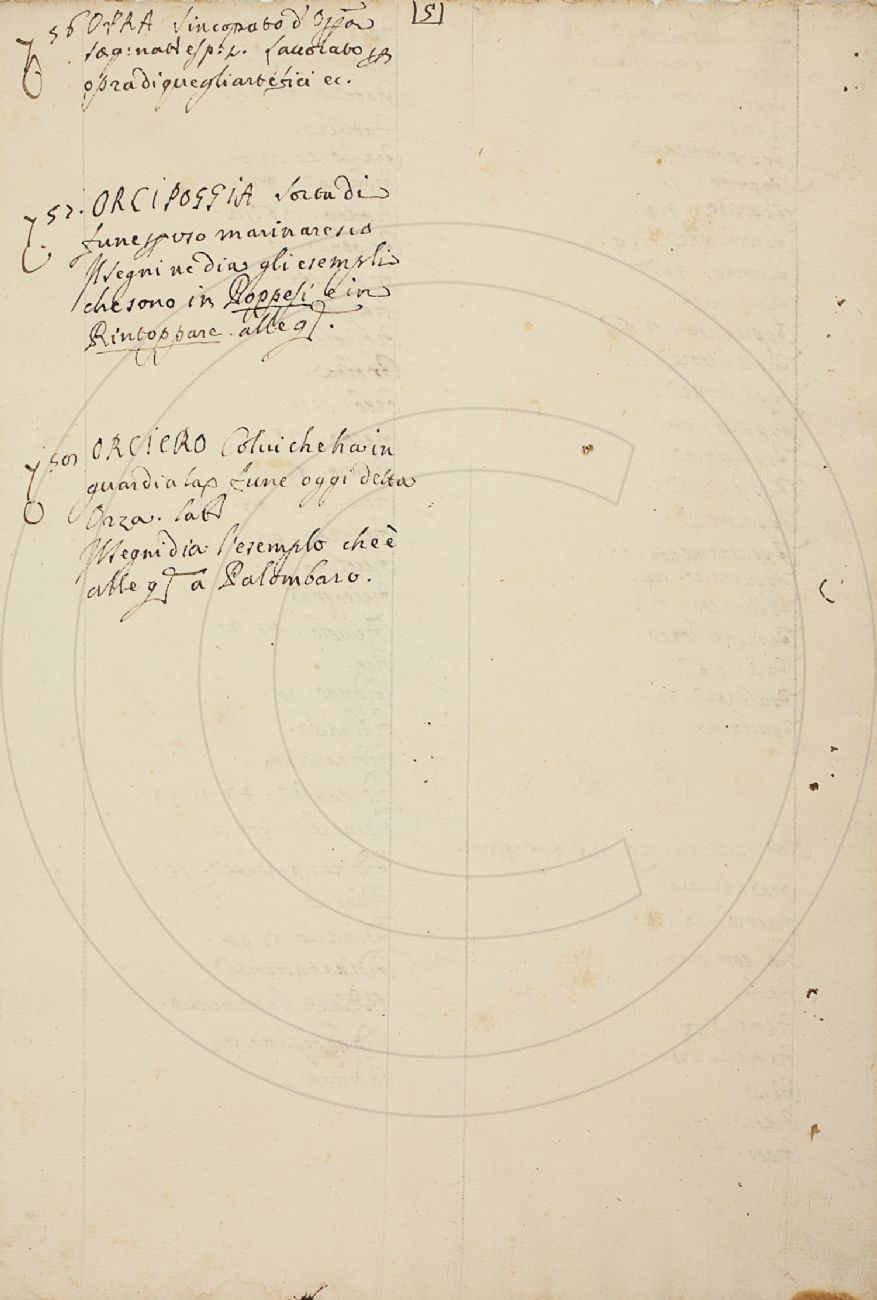 [5]
56 OPRA Sincopato d'Opera
Sag: nat: esp: Lavorato p
opra di quegli artefici ec.
57. ORCIPOGGIA Sorta di
fune p uso marinaresco
Il segni ne dia gli esempli
che sono in Poppesi e in
Rintoppare. alle g
58 ORCIERO Colui che ha in
guardia la fune oggi detta
Orza. lat
Il segni dia l'esemplo che è
alle g a Palombaro.